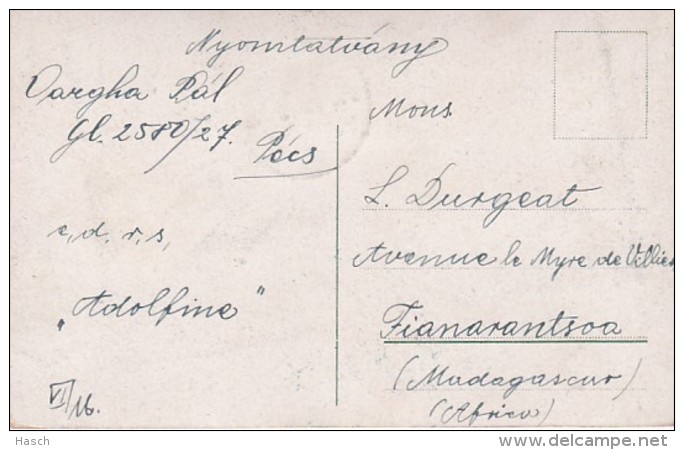 Nyomtatvány
Vargha Pál
Gl. 2580/27.
Pécs
c, d, r, s,
„Adolfine"
VI/16.
Mons.
L. Durgeat
Avenue le Myre de Villiers
Fianarantsoa
(Madagascar)
(Africa)
Hasch
www.delcampe.net